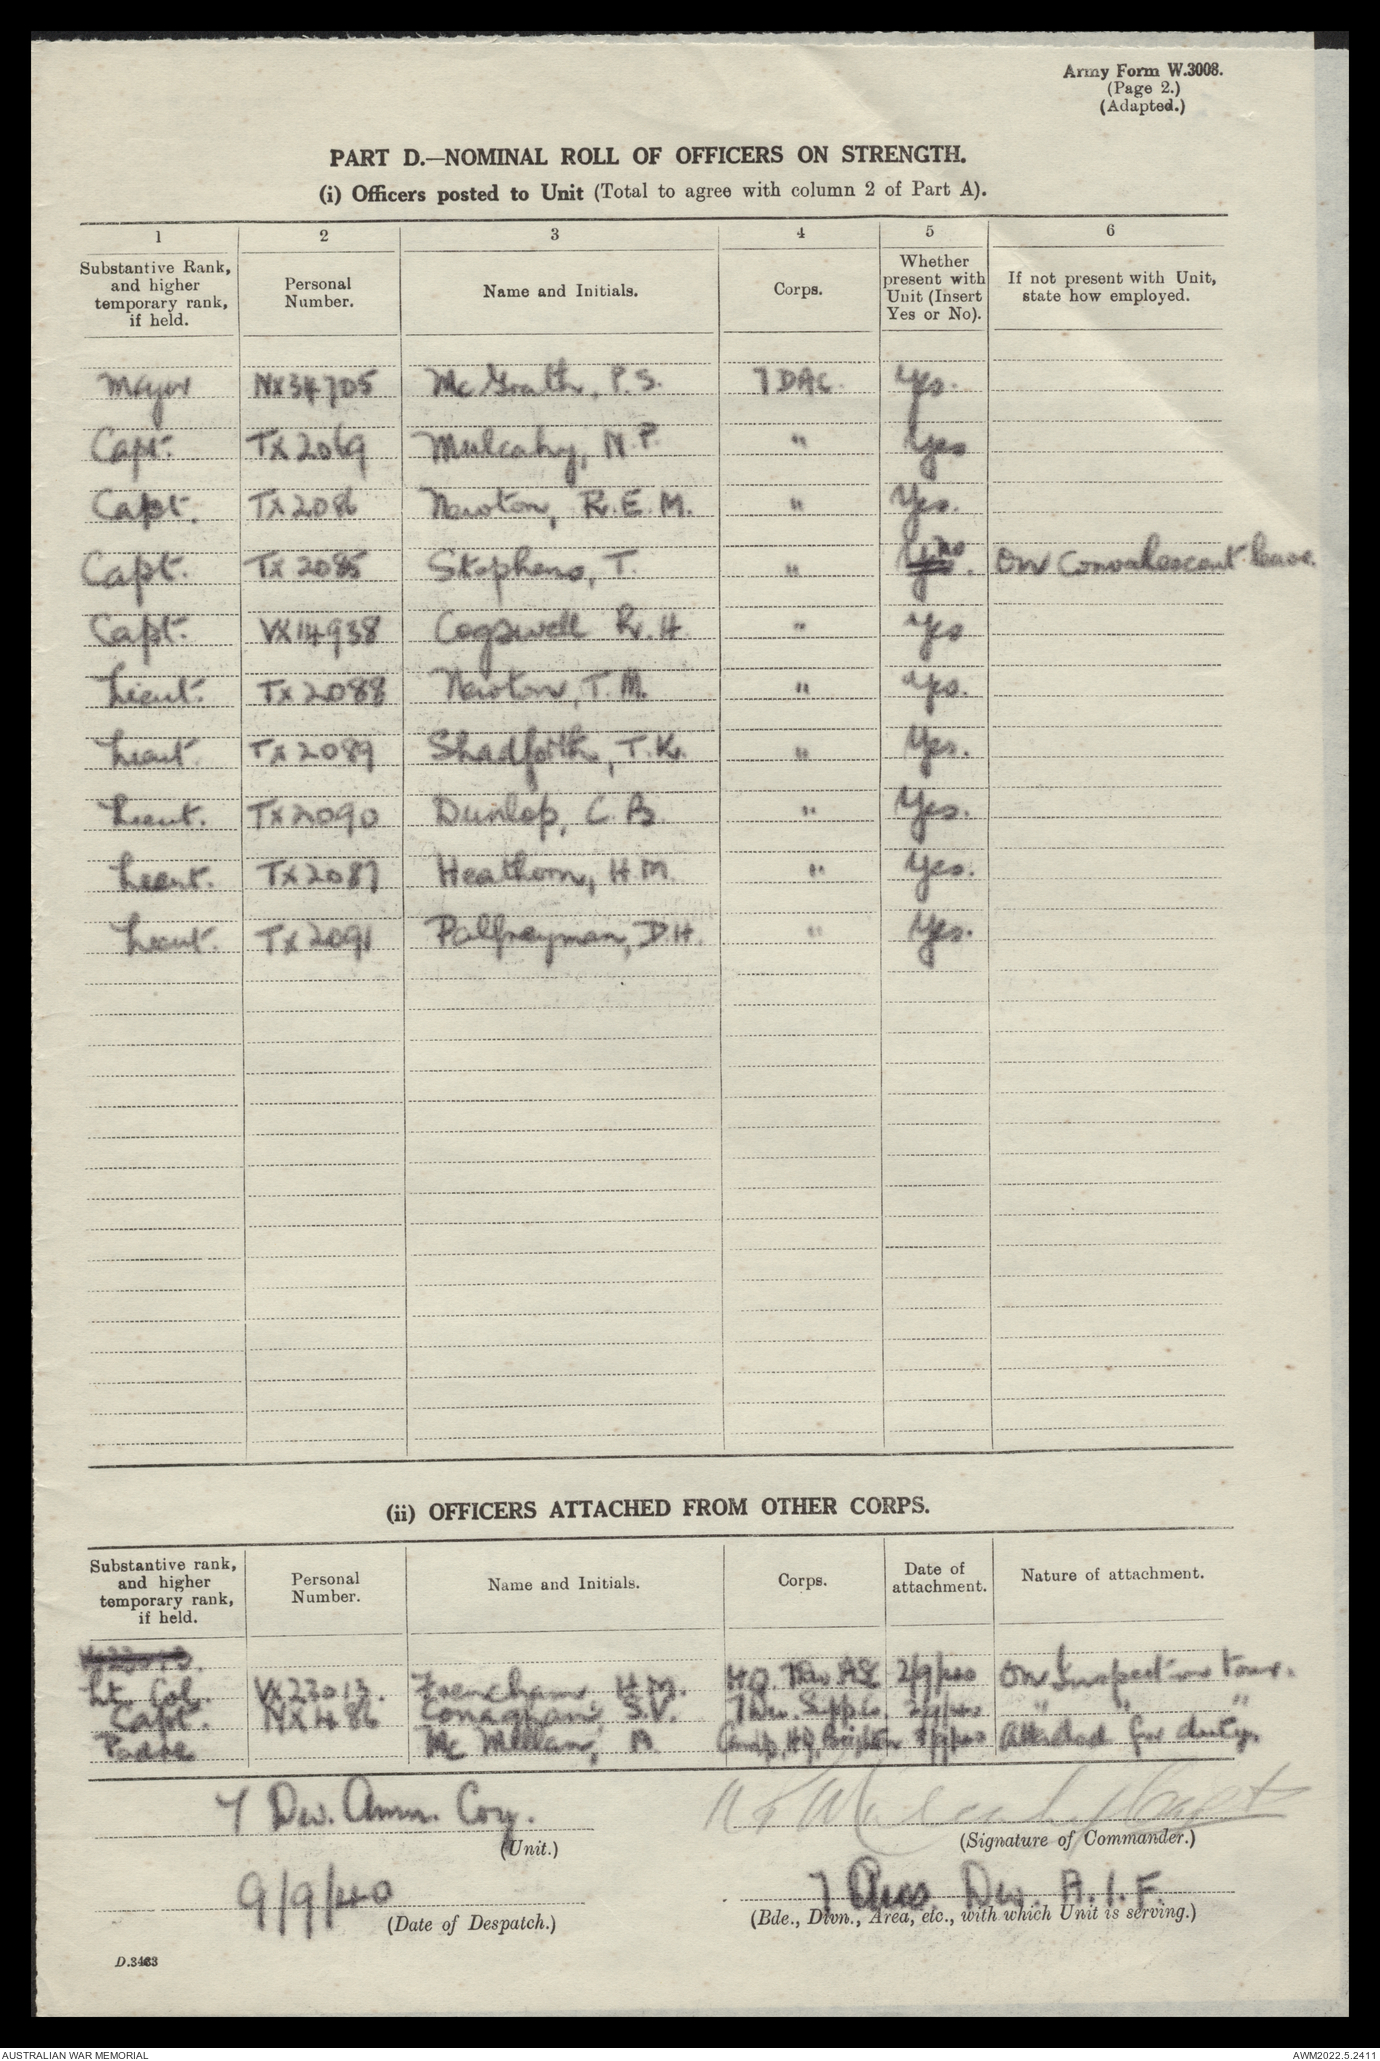 Army Form W.3008.
(Page 2.)
(Adapted.)
PART D.—NOMINAL ROLL OF OFFICERS ON STRENGTH.
(i) Officers posted to Unit (Total to agree with column 2 of Part A).
1 2 3 4 5 6
Substantive Rank, and higher temporary rank, if held. Personal Number. Name and Initials. Corps. Whether present with Unit (Insert Yes or No). If not present with Unit, state how employed.
Major NX34705 McGrath, P.S. 7 DAC. Yes.
Capt. TX2069 Mulcahy, N.P. " Yes
Capt. TX2086 Newton, R.E.M. " Yes.
Capt. TX2085 Stephens, T. " no. On Convalescent leave.
Capt. VX14938 Cogswell R.H. " Yes
Lieut. TX2088 Newton, T.M. " Yes.
Lieut. TX2089 Shadforth, T.K. " Yes.
Lieut. TX2090 Dunlop, C.B. " Yes.
Lieut. TX2087 Heathorn, H.M. " Yes.
Lieut. TX2091 Palfreyman, D.H. " Yes.
(ii) OFFICERS ATTACHED FROM OTHER CORPS.
Substantive rank, and higher temporary rank, if held. Personal Number. Name and Initials. Corps. Date of attachment. Nature of attachment.
Vx23013.
Lt Col. Vx23013. Frencham, H.M. H.Q. 7 Div. ASC 2/9/40 On Inspection tour.
Capt. NX486 Conaghan, S.V. 7 Div. Supp Co. 2/9/40 " " "
Padre Mc Mellan, M. Camp, HQ, Brighton /9/40 Attached for duty.
7 Div. Amm. Coy.
(Unit.)
N P Mulcahy Capt
(Signature of Commander.)
9/9/40
(Date of Despatch.)
7 Aus Div. A.I.F.
(Bde., Divn., Area, etc., with which Unit is serving.)
D.3463
AUSTRALIAN WAR MEMORIAL
AWM2022.5.2411